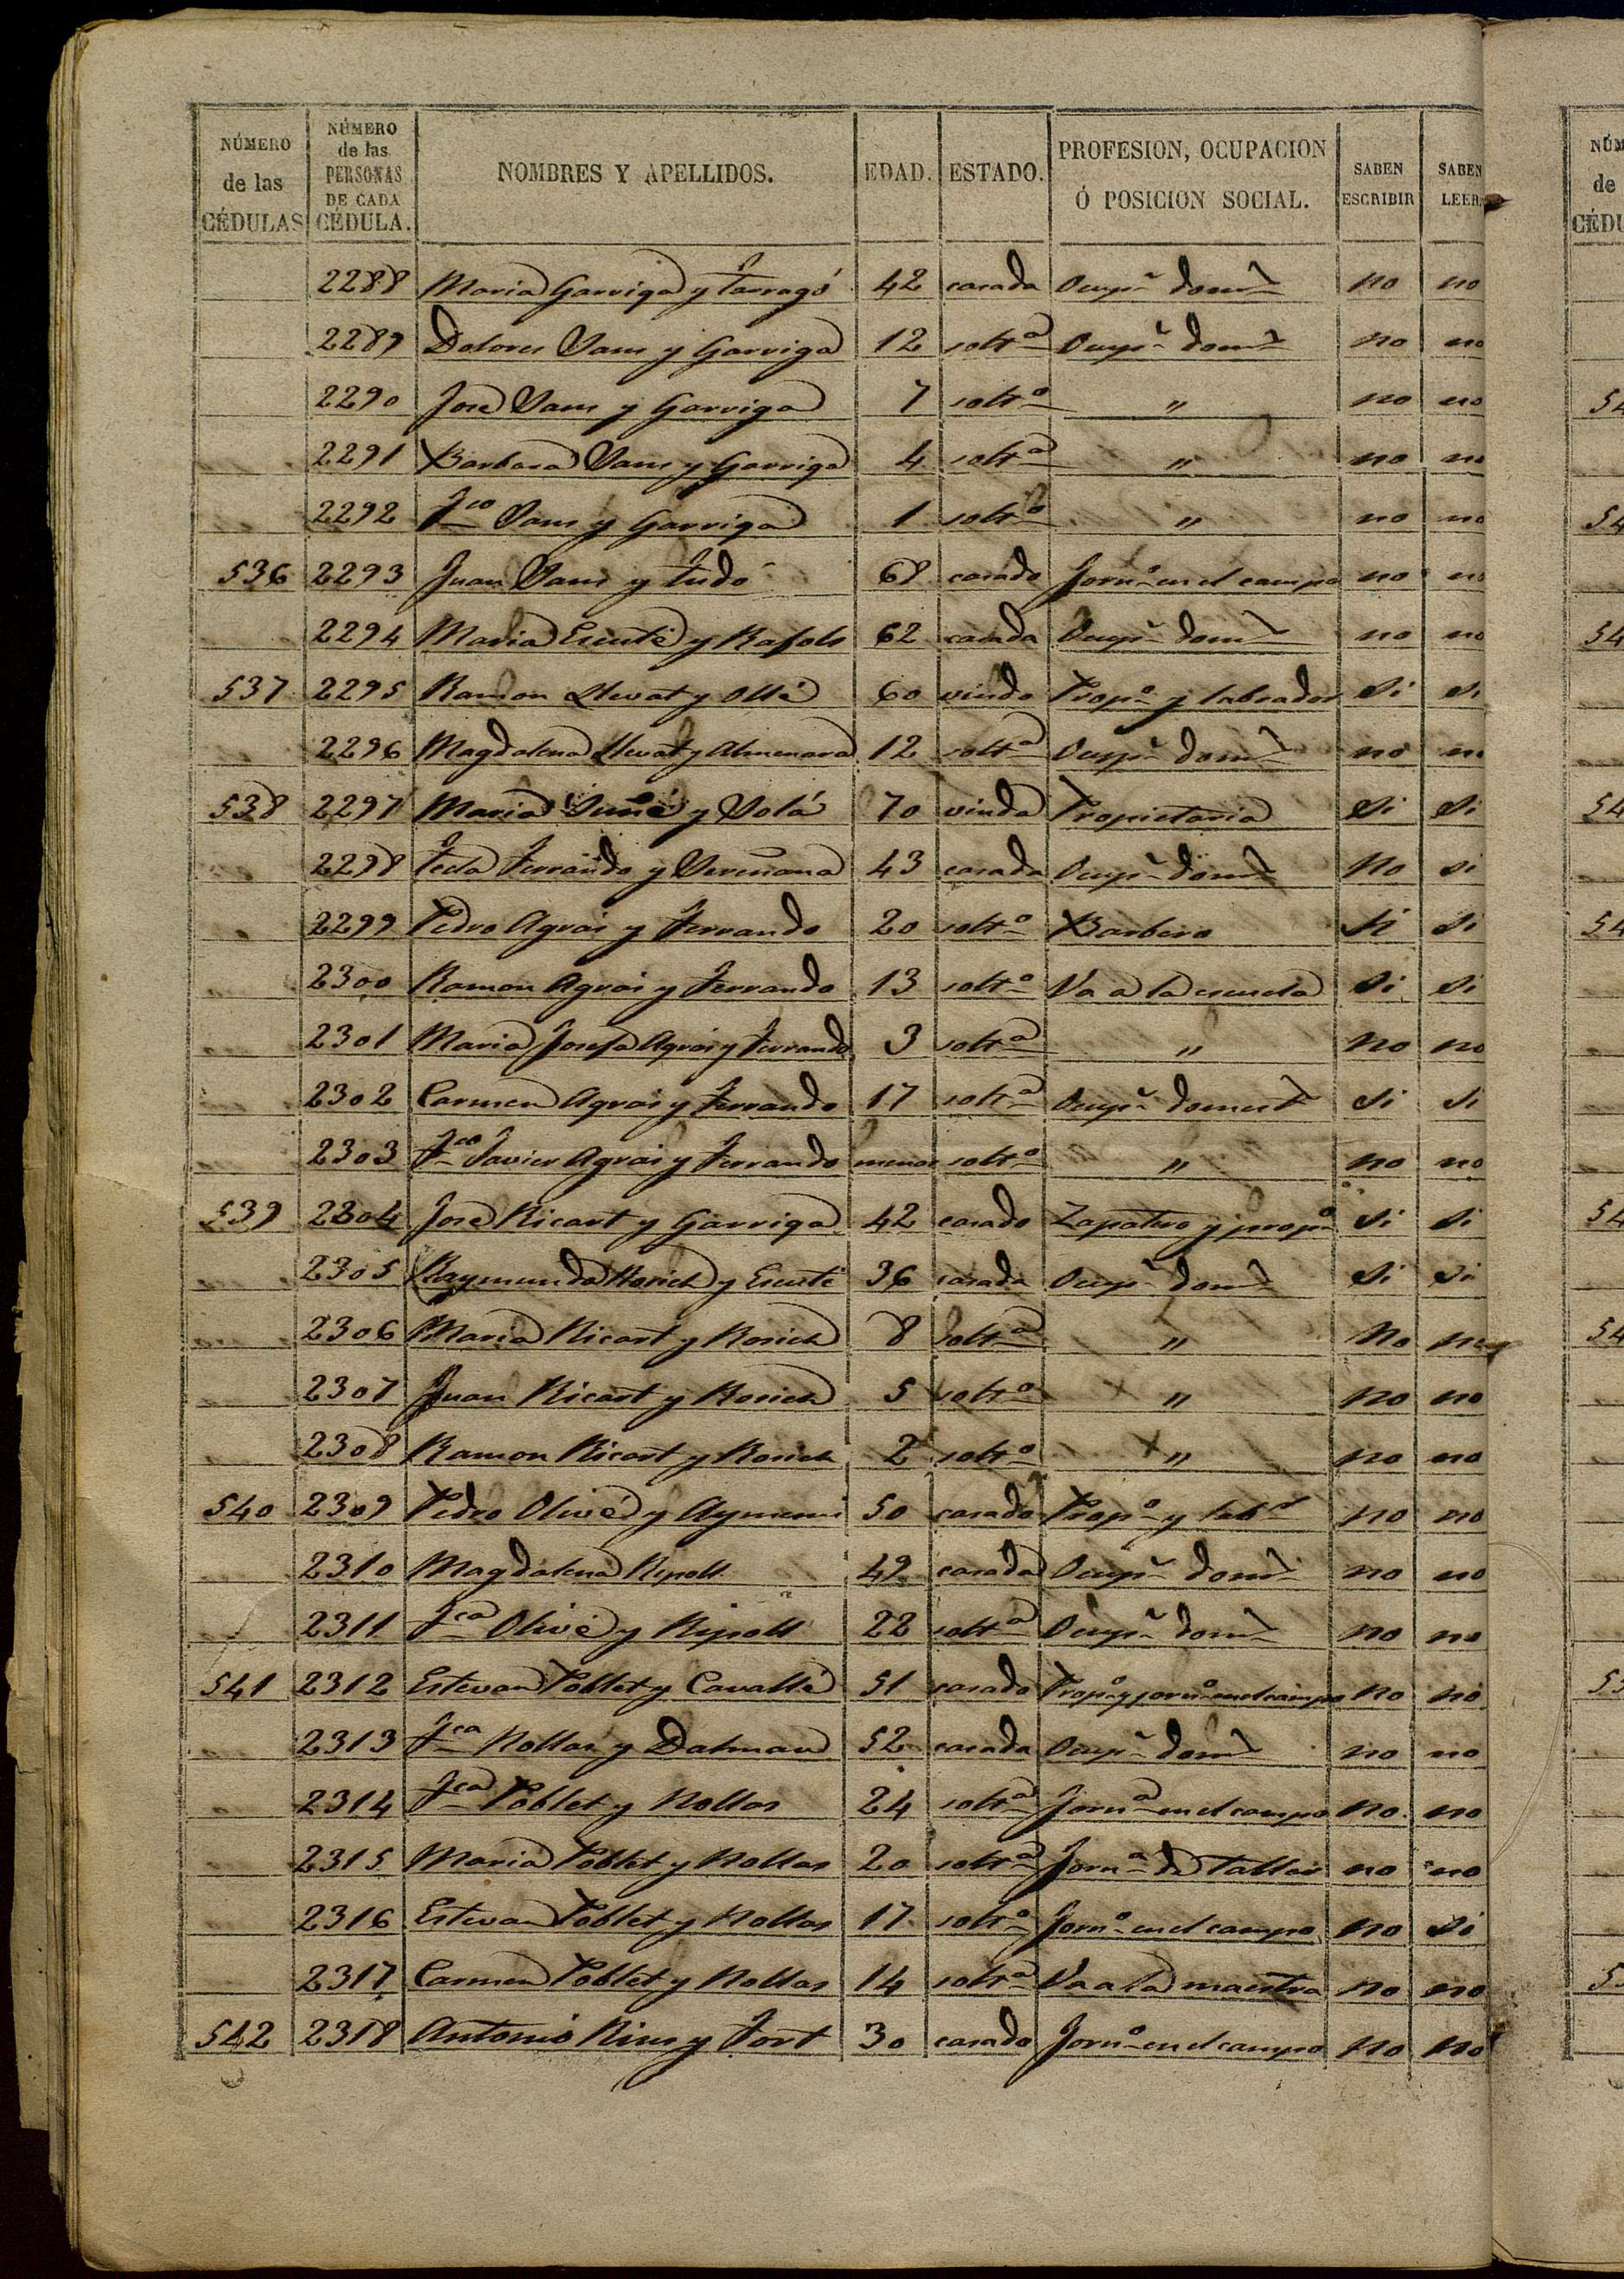 NÚMERO de las CÉDULAS NÚMERO de las PERSONAS DE CADA CÉDULA. NOMBRES Y APELLIDOS. EDAD. ESTADO. PROFESION, OCUPACION Ó POSICION SOCIAL. SABEN ESCRIBIR SABEN LEER
2288 Maria Garriga y Tarragó 42 casada Ocupn domt no no
2289 Dolores Sans y Garriga 12 solta Ocupn domt no no
2290 José Sans y Garriga 7 solto " no no
2291 Barbara Sans y Garriga 4 solta " no no
2292 Fco Sans y Garriga 1 solto " no no
536 2293 Juan Sans y Tudó 68 casado Jorno en el campo no no
2294 Maria Escuté y Rafols 62 casada Ocupn domt no no
537 2295 Ramon Llevat y Ollé 60 viudo Propo y labrador Si Si
2296 Magdalena Llevat y Almenara 12 solta Ocupn domt no no
538 2297 Maria Suñé y Solá 70 viuda Propietaria Si Si
2298 Tecla Ferrando y 43 casada Ocupn domt No Si
2299 Pedro Agrás y Ferrando 20 solto Barbero Si Si
2300 Ramon Agrás y Ferrando 13 solto Va a la escuela Si Si
2301 Maria Josefa Agrás y Ferrando 3 solta " no no
2302 Carmen Agrás y Ferrando 17 solta Ocupn domest Si Si
2303 Fco Javier Agrás y Ferrando menor solto " no no
539 2304 José Ricart y Garriga 42 casado Zapatero y propo Si Si
2305 Raymunda Rosich y Escuté 36 casada Ocupn domt Si Si
2306 Maria Ricart y Rosich 8 solta " No no
2307 Juan Ricart y Rosich 5 solto " no no
2308 Ramon Ricart y Rosich 2 solto " no no
540 2309 Pedro Olivé y Aymemi 50 casado Propo y labr no no
2310 Magdalena Ripoll 49 casada Ocupn domt no no
2311 Fca Olivé y Ripoll 22 solta Ocupn domt no no
541 2312 Estevan Poblet y Cavallé 51 casado Propo y jorno en el campo no no
2313 Fca Nollas y Dalmau 52 casada Ocupn domt no no
2314 Fca Poblet y Nollas 24 solta Jorna en el campo no no
2315 Maria Poblet y Nollas 20 solta Jorna de taller no no
2316 Estevan Poblet y Nollas 17 solto Jorno en el campo no Si
2317 Carmen Poblet y Nollas 14 solta Va a la maestra no no
542 2318 Antonio Rius y Fort 30 casado Jorno en el campo no no